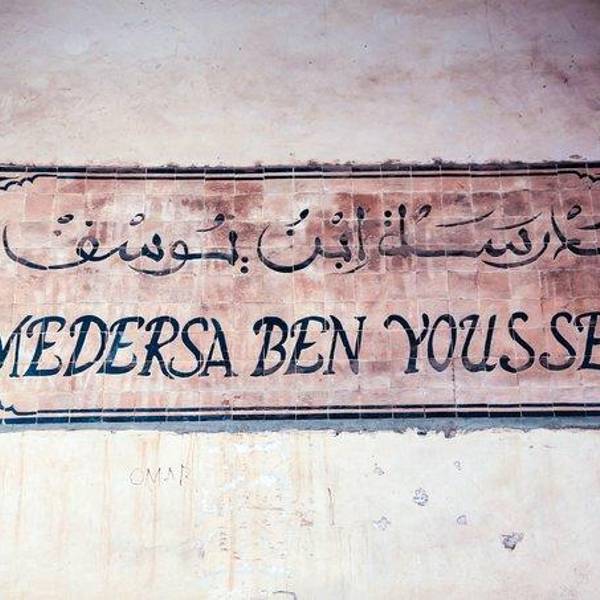 مدرسة ابْنُ يُوسُفْ
MEDERSA BEN YOUSSE
OMAR